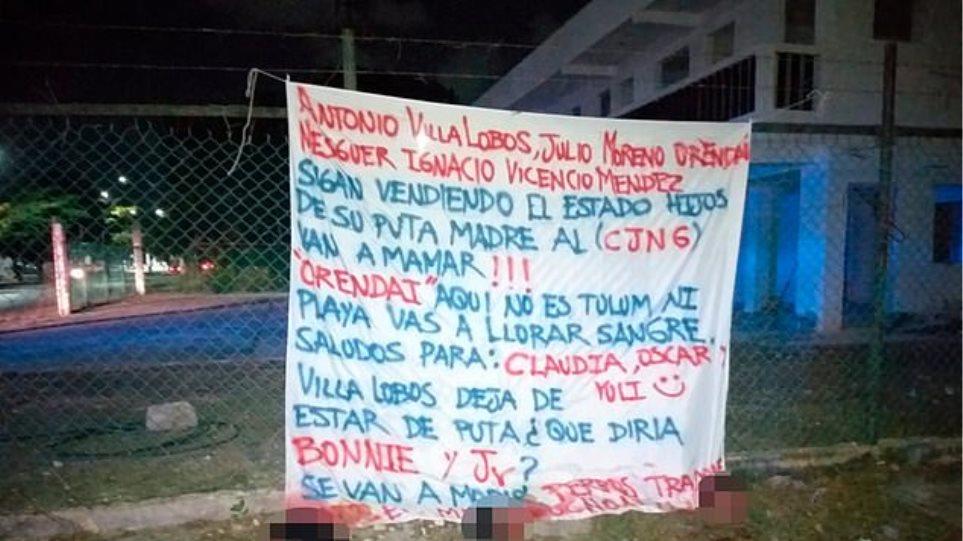 ANTONIO VILLA LOBOS, JULIO MORENO ORENDAI
NESGUER IGNACIO VICENCIO MENDEZ
SIGAN VENDIENDO EL ESTADO HIJOS
DE SU PUTA MADRE AL (CJNG)
VAN A MAMAR!!!
"ORENDAI" AQUI NO ES TULUM, NI
PLAYA VAS A LLORAR SANGRE.
SALUDOS PARA: CLAUDIA, OSCAR,
YULI
VILLA LOBOS DEJA DE
ESTAR DE PUTA ¿QUE DIRIA
BONNIE Y Jr?
SE VAN A